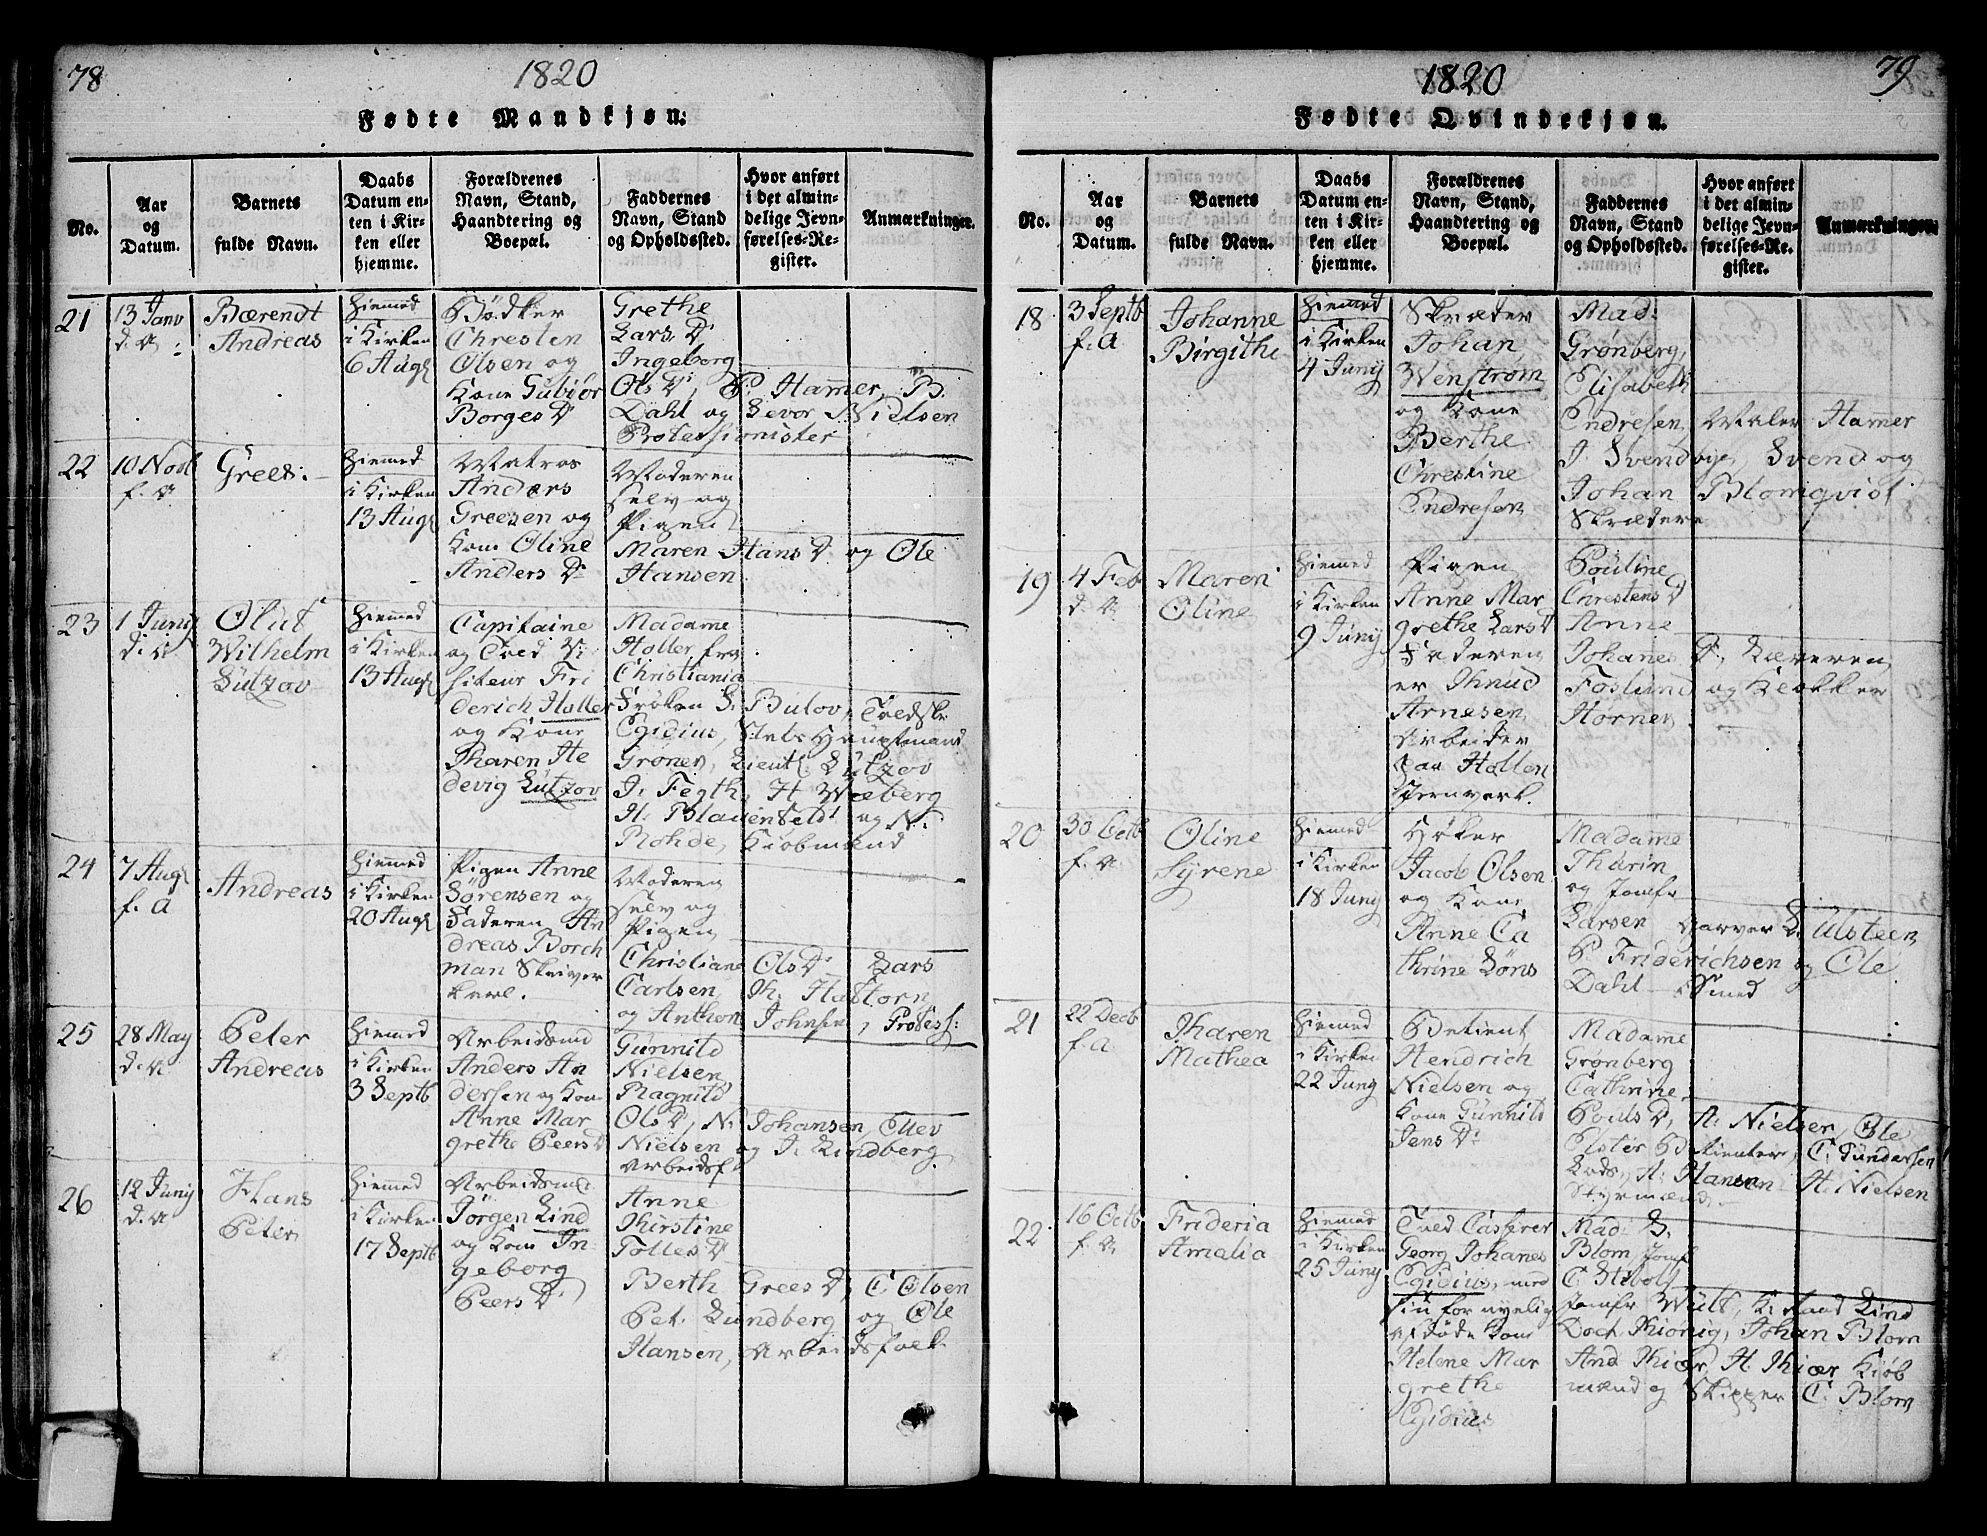 78
1820
Fødte Mandkjøn.
No.
Aar
og
Datum.
Barnets
fulde Navn.
Daabs
Datum en-
ten i Kir-
ken eller
hjemme.
Forældrenes
Navn, Stand,
Haandtering og
Boepæl.
Faddernes
Navn, Stand
og Opholdssted.
Hvor anført
i det almin-
delige Jevn-
førelses-Re-
gister.
Anmærkninger.
21
13 Janv
d. A.
Bærendt
Andreas
Hiemed
i Kirken
6 Augs
Bødker
Chresten
Olsen og
Kone Gubiør
Borges D
Grethe
Lars D
Ingeborg
Ols D, P. Hamer, B.
Dahl og Sevor Nielsen
Professionister
22
10 Novb
f. A
Grees:
Hiemed
i Kirken
13 Augs
Matros
Anders
Greesen og
Kone Oline
Anders D
Moderen
selv og
Pigen
Maren Hans D. og Ole
Hansen
23
1 Juny
d. A
Oluf
Wilhelm
Lützov
Hiemed
i Kirken
13 Augs
Capitaine
og Told Vi
siteur Fri
derich Holler
og Kone
Karen He
devig Lützov
Madame
Holler fra
Christiania
Frøken S. Bulov, Toldsk.
Egidius, Stabs Hauptmand
Grøner, Lieut. Lützov
J. Fegth, H Weberg
H. Blauenfeldt og N.
Rohde, Kiøbmænd
24
7 Augs
f. a
Andreas
Hiemed
i Kirken
20 Augs
Pigen Anne
Sørensen og
Faderen An
dreas Borch
man Skriver
karl.
Moderen
selv og
Pigen
Christiane Ols D Lars
Carlsen, H. Halvorn
og Anthon Johnsen, Profess:
25
28 May
d. A
Peter
Andreas
Hiemed
i Kirken
3 Septb
Arbeidsmd
Anders An
dersen og Kone
Anne Mar
grethe Peers D
Gunnild
Nielsen
Ragnild
Ols D, N. Johansen, Ellev
Nielsen og J. Lindberg
Arbeidsf.
26
12 Juny
d. A
Hans
Peter
Hiemed
i Kirken
17 Septb
Arbeidsmd.
Jørgen Lind
og Kone In-
geborg
Peers D
Anne
Kirstine
Tolles D
Berth Grees D, C Olsen
Pet. Lundberg og Ole
Hansen, Arbeidsfolk
1820
79
Fødte Qvindekjøn.
No.
Aar
og
Datum.
Barnets
fulde Navn.
Daabs
Datum en-
ten i Kir-
ken eller
hjemme.
Forældrenes
Navn, Stand,
Haandtering og
Boepæl.
Faddernes
Navn, Stand
og Opholdssted.
Hvor anført
i det almin-
delige Jevn-
førelses-Re-
gister.
Anmærkninger.
18
3 Septb
f. A
Johanne
Birgithe
Hiemed
i Kirken
4 Juny
Skræder
Johan
Wenstrøm
og Kone
Berthe
Chrestine
Endresen
Mad:
Grønberg,
Elisabeth
Endresen, Maler Hamer
J. Svendbye, Svend og
Johan Blomqvist
Skrædere
19
4 Feb
d. A
Maren
Oline
Hiemed
i Kirken
9 Juny
Pigen
Anne Mar
grethe Lars D
Faderen
er Knud
Arnesen,
Arbeider
paa Hollen
Jernverk.
Pouline
Chrestens D
Anne
Johanes D, Læreren
Foslund og Klokker
Hørner
20
30 Octb
f. A
Oline
Syrene
Hiemed
i Kirken
18 Juny
Høker
Jacob Olsen
og Kone
Anne Ca
thrine Løns
Madame
Thurim
og Jomfr
Larsen Garver L. Ulsteen
P. Friderichsen og Ole
Dahl Smed
21
22 Decb
f. a
Karen
Mathea
Hiemed
i Kirken
22 Juny
Betient
Hendrich
Nielsen og
Kone Gunnild
Jens D
Madame
Grønberg
Cathrine
Pouls D, A. Nielsen, Ole
Ester Betientere, C. Gundersen
Lods, A. Hansen H. Nielsen
Styrmænd.
22
16 Octb
f. A
Frideria
Amalia
Hiemed
i Kirken
25 Juny
Told Casserer
Georg Johanes
Egidius, med
sin for nyelig
afdøde Kone
Helene Mar
grethe
Egidius
Mad: S.
Blom Jomf
C. Stibolt
Jomfr Wult, K. Raad Lind
Doct. Kiønig, Johan Blom
And Kiær, H. Kiær Kiøb
mænd og Skipper C. Blom